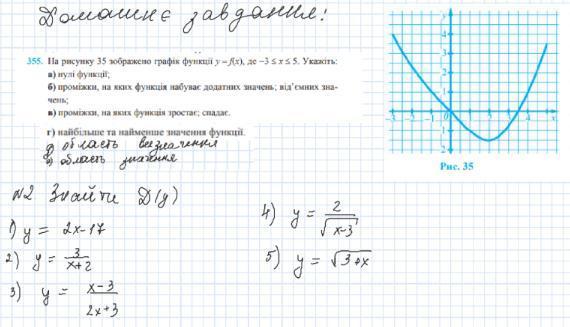 Домашнє завдання!
355. На рисунку 35 зображено графік функції y = f(x), де −3 ≤ x ≤ 5. Укажіть:
а) нулі функції;
б) проміжки, на яких функція набуває додатних значень; від'ємних зна-
чень;
в) проміжки, на яких функція зростає; спадає.
г) найбільше та найменше значення функції.
область визначення
область значення
Рис. 35
N2 Знайти D(y)
1) y = 2x-17
2) y = 3/(x+2)
3) y = (x-3)/(2x+3)
4) y = 2/√(x-3)
5) y = √(3+x)